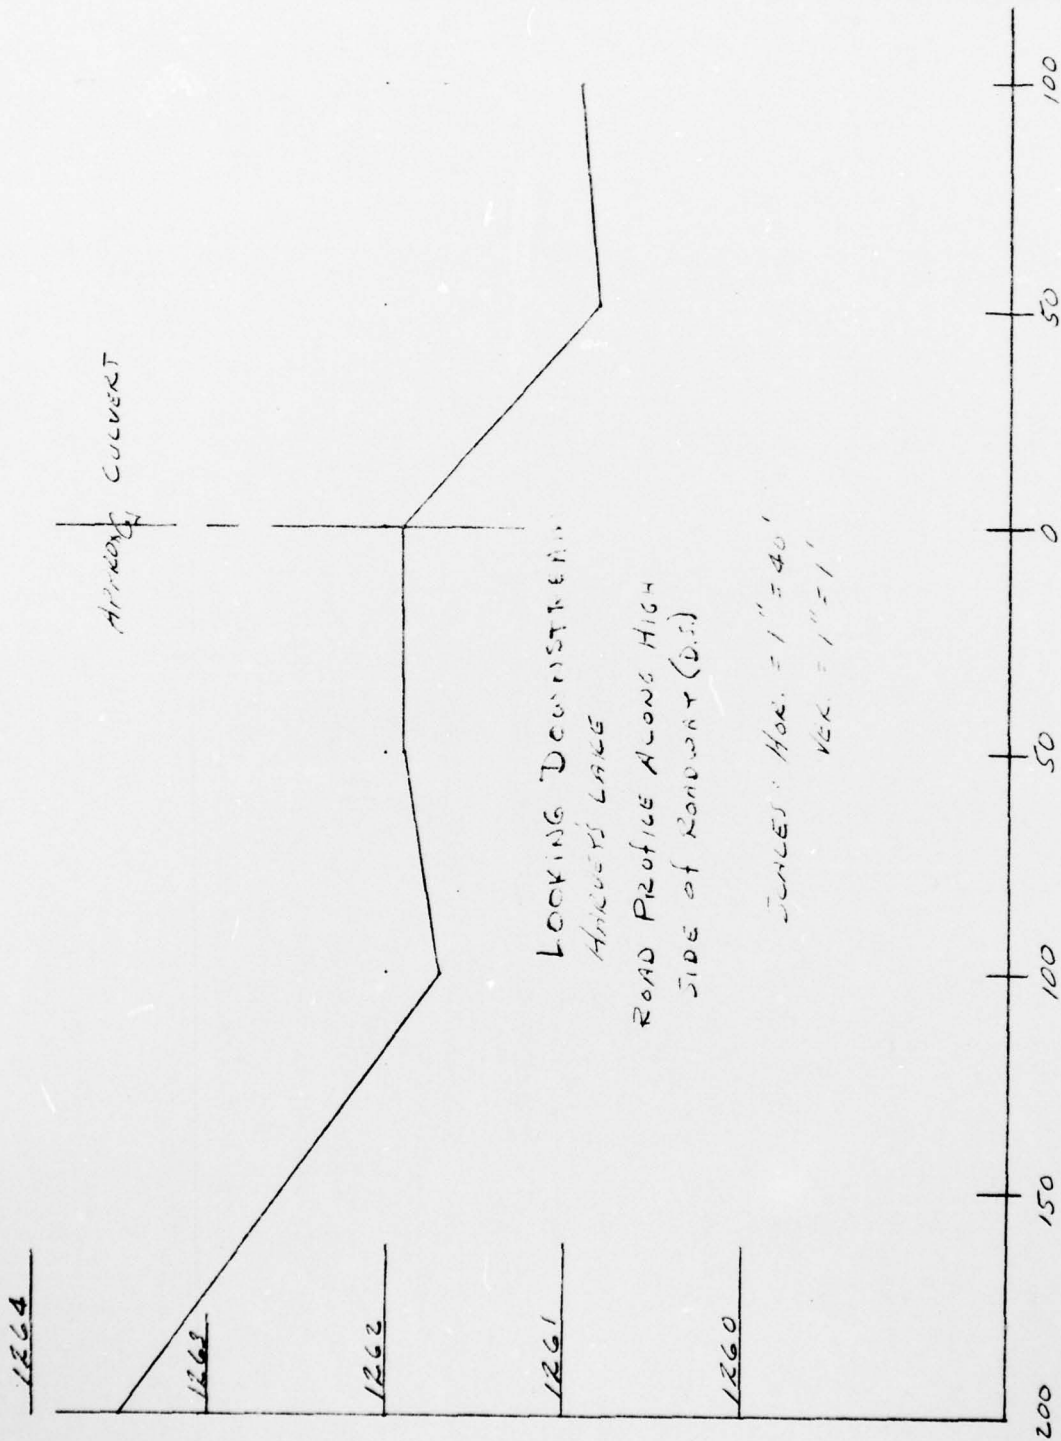 APPROX ℄ CULVERT
1264
1263
1262
1261
1260
LOOKING DOWNSTREAM
HARVEYS LAKE
ROAD PROFILE ALONG HIGH
SIDE OF ROADWAY (D.S.)
SCALES: HOR. = 1" = 40'
VER. = 1" = 1'
200 150 100 50 0 50 100